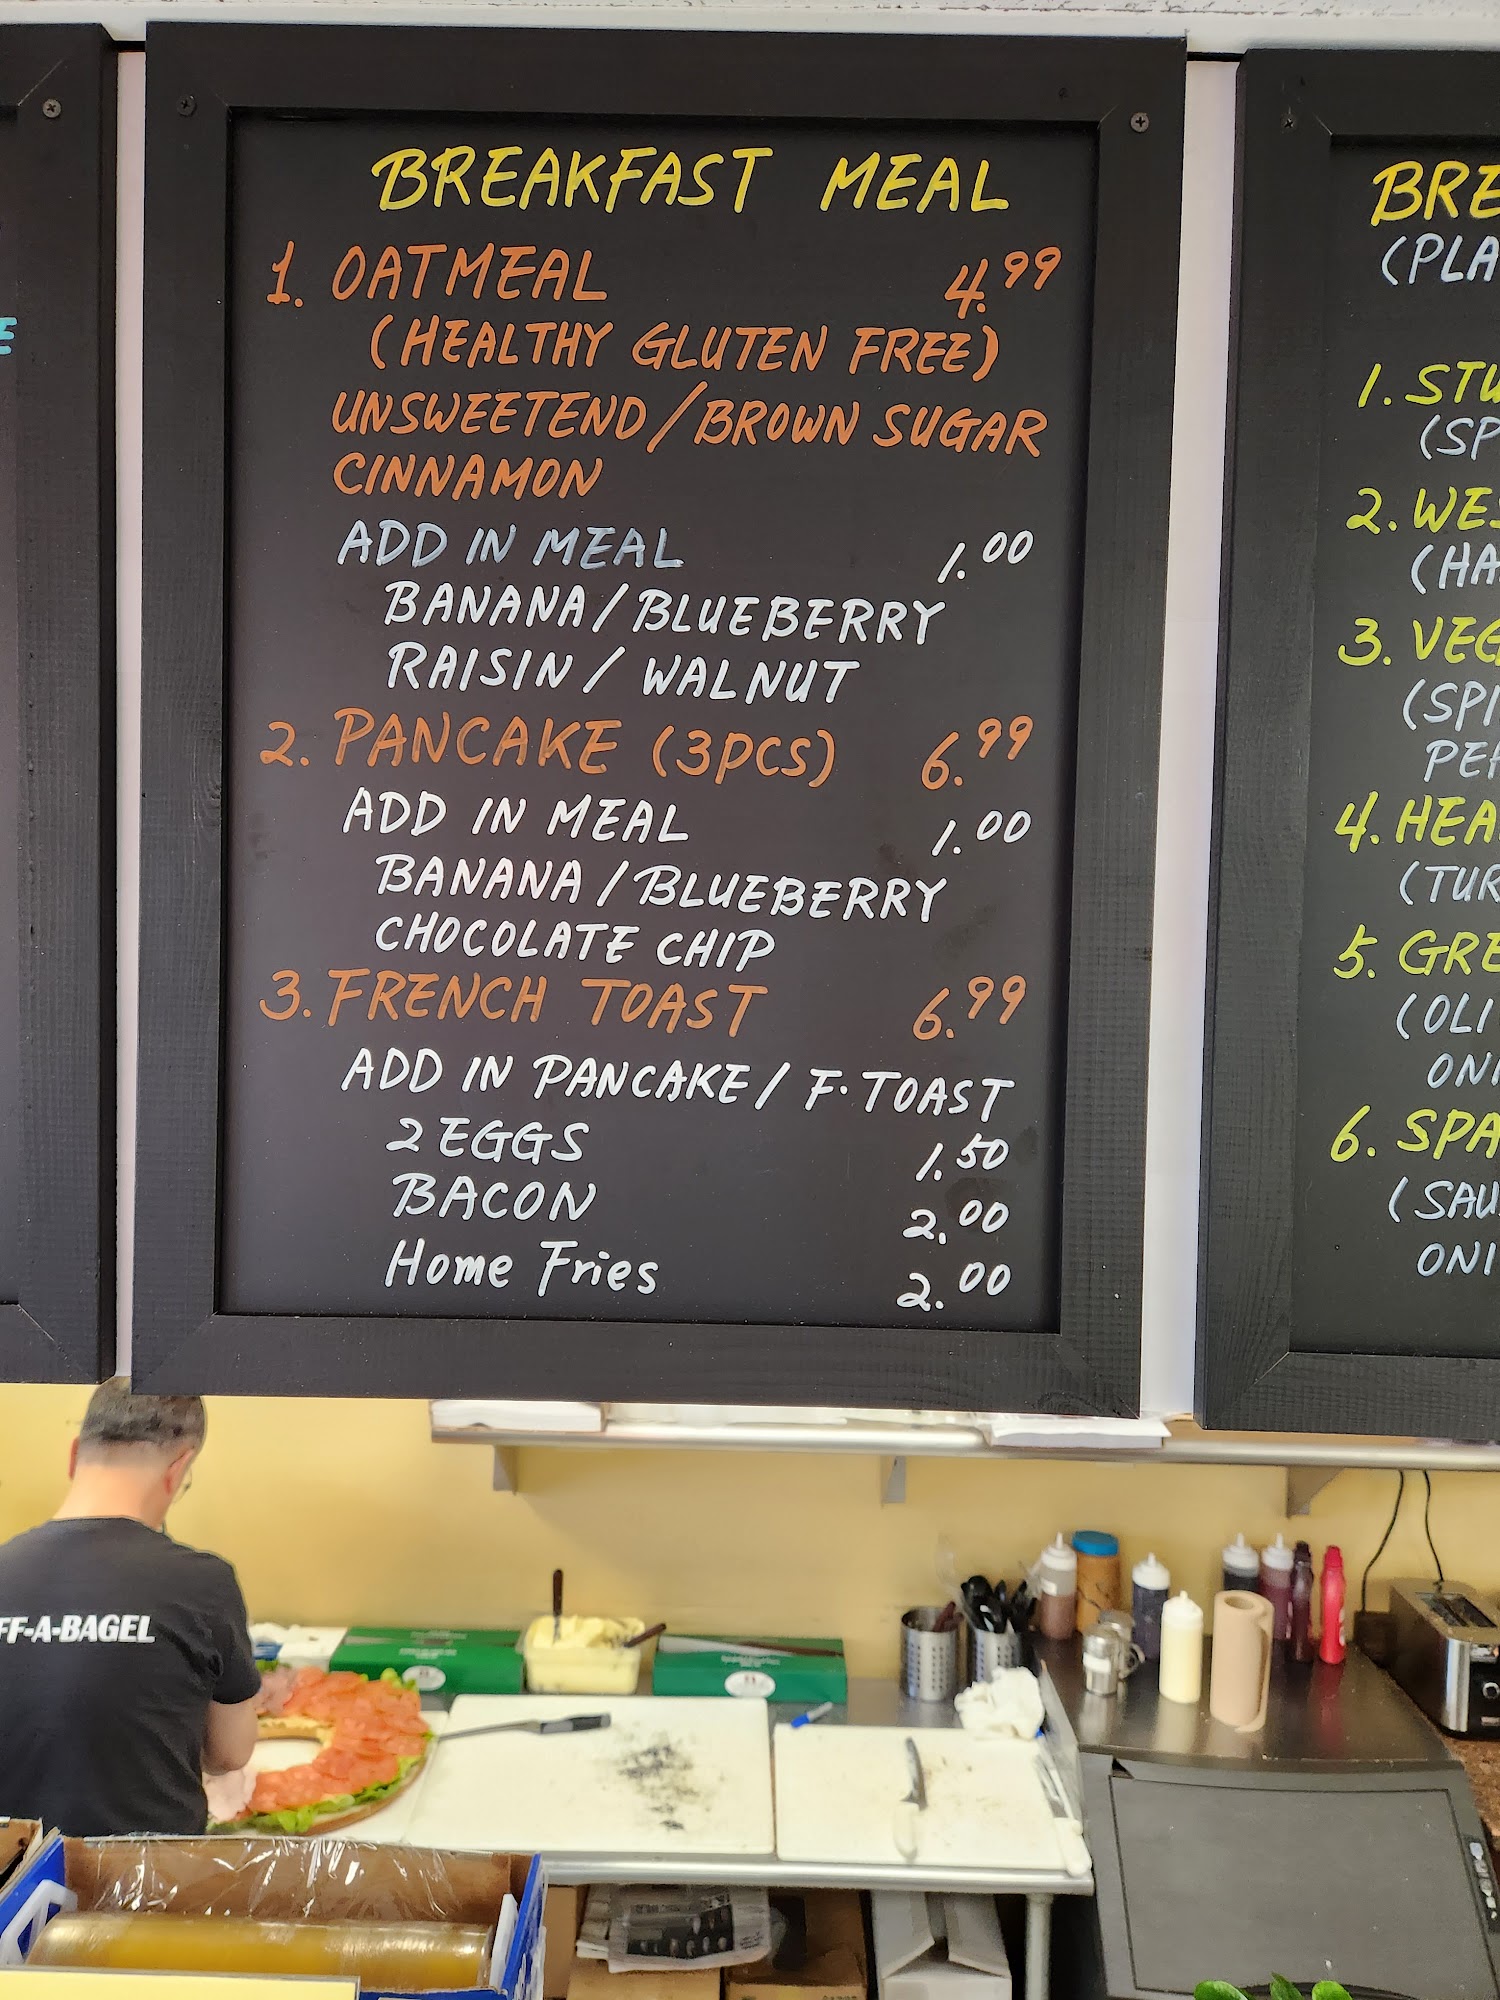 BREAKFAST MEAL
1. OATMEAL 4.99
(HEALTHY GLUTEN FREE)
UNSWEETEND/BROWN SUGAR
CINNAMON
ADD IN MEAL 1.00
BANANA/BLUEBERRY
RAISIN/WALNUT
2. PANCAKE (3PCS) 6.99
ADD IN MEAL 1.00
BANANA/BLUEBERRY
CHOCOLATE CHIP
3. FRENCH TOAST 6.99
ADD IN PANCAKE/F. TOAST
2 EGGS 1.50
BACON 2.00
Home Fries 2.00
BRE
(PLA
1. STU
(SP
2. WES
(HA
3. VEG
(SPI
PEP
4. HEA
(TUR
5. GRE
(OLI
ONI
6. SPA
(SAU
ONI
E
FF-A-BAGEL